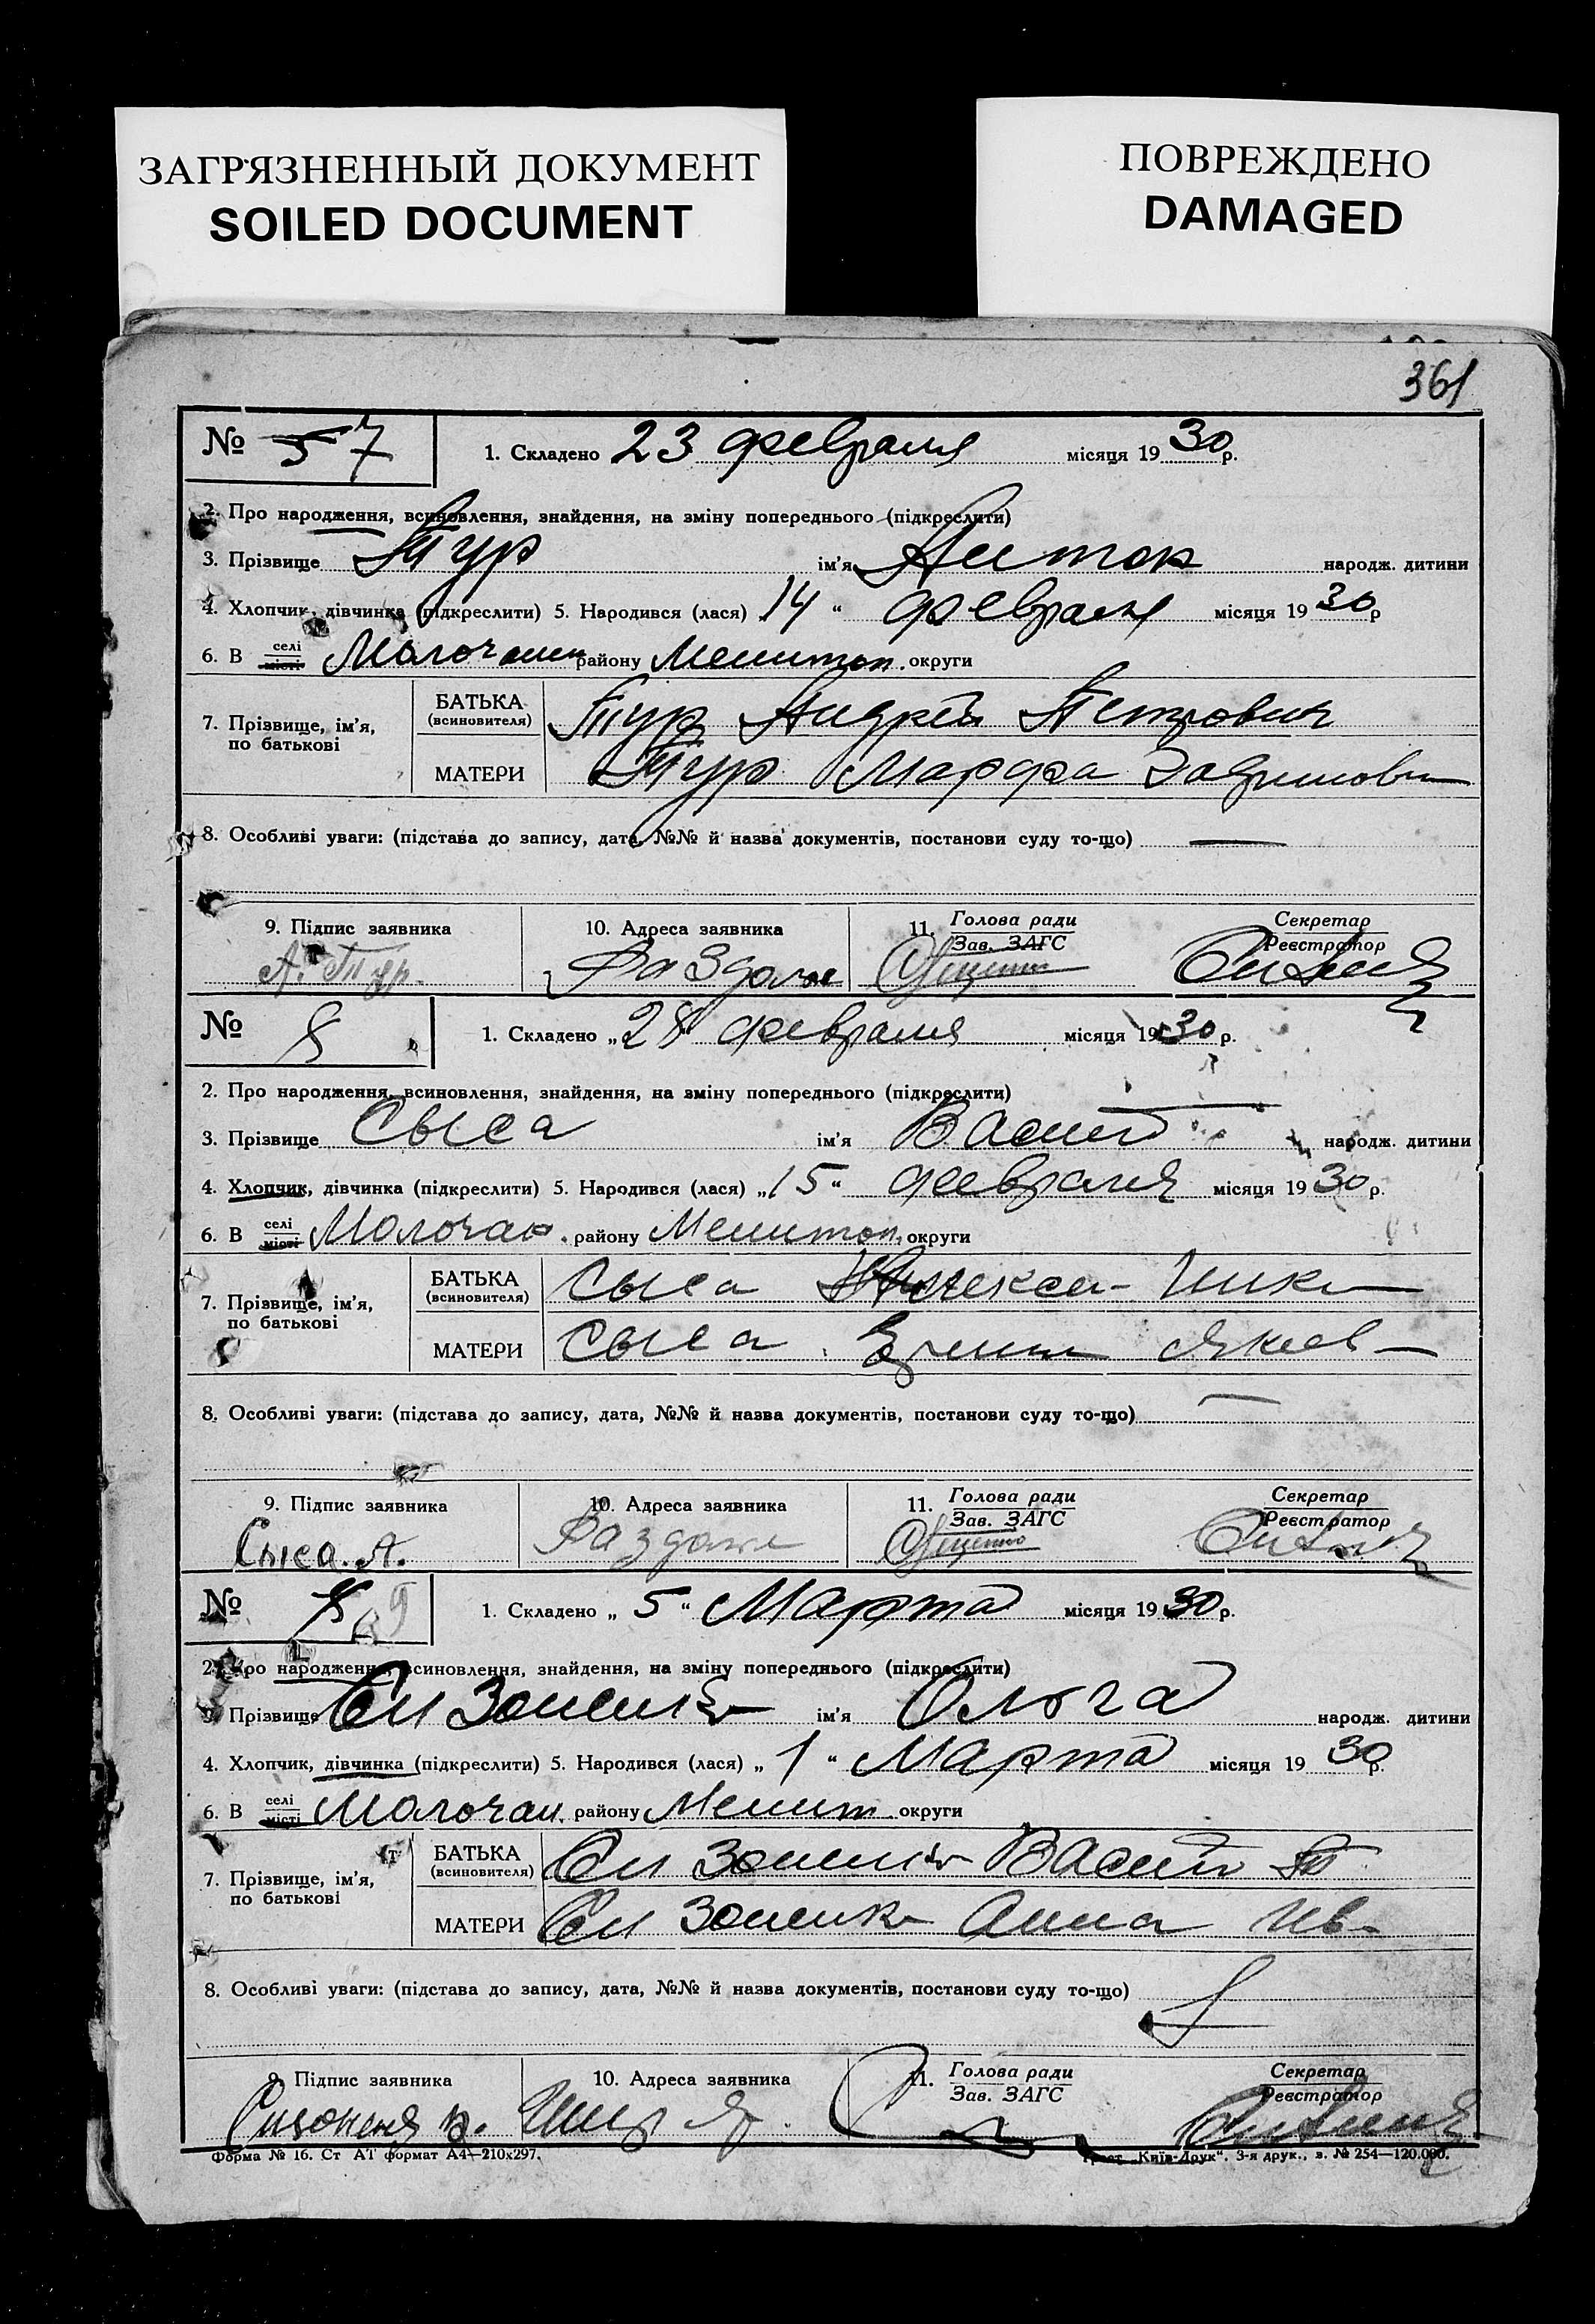 ЗАГРЯЗНЕННЫЙ ДОКУМЕНТ
SOILED DOCUMENT
ПОВРЕЖДЕНО
DAMAGED
361
№ 5 7
1. Складено 23 февраля місяця 1930 р.
2. Про народження, всиновлення, знайдення, на зміну попереднього (підкреслити)
3. Прізвище Тур ім'я Антон народж. дитини
4. Хлопчик, дівчинка (підкреслити) 5. Народився (лася) 14 “ февраля місяця 1930 р
6. В селі місті Молочанск району Мелитоп. округи
7. Прізвище, ім'я, по батькові
БАТЬКА (всиновителя) Тур Андрей Петрович
МАТЕРИ Тур Марфа
8. Особливі уваги: (підстава до запису, дата, №№ й назва документів, постанови суду то-що) —
9. Підпис заявника
10. Адреса заявника
11. Голова ради Зав. ЗАГС
Секретар Реєстратор
А. Тур.
№ 8
1. Складено „28“ февраля місяця 1930 р.
2. Про народження, всиновлення, знайдення, на зміну попереднього (підкреслити)
3. Прізвище Сыса ім'я Васил народж. дитини
4. Хлопчик, дівчинка (підкреслити) 5. Народився (лася) „15“ февраля місяця 1930 р.
6. В селі місті Молочан. району Мелитоп. округи
7. Прізвище, ім'я, по батькові
БАТЬКА (всиновителя) Сыса Алексей
МАТЕРИ Сыса
8. Особливі уваги: (підстава до запису, дата, №№ й назва документів, постанови суду то-що) —
9. Підпис заявника
10. Адреса заявника
11. Голова ради Зав. ЗАГС
Секретар Реєстратор
Сыса. А.
№ 8 9
1. Складено „5“ Марта місяця 1930 р.
2. Про народження, всиновлення, знайдення, на зміну попереднього (підкреслити)
3. Прізвище ім'я Ольга народж. дитини
4. Хлопчик, дівчинка (підкреслити) 5. Народився (лася) „1“ Марта місяця 1930 р.
6. В селі місті Молочан. району Мелит округи
7. Прізвище, ім'я, по батькові
БАТЬКА (всиновителя) Васил П
МАТЕРИ Анна Ив
8. Особливі уваги: (підстава до запису, дата, №№ й назва документів, постанови суду то-що)
9. Підпис заявника
10. Адреса заявника
11. Голова ради Зав. ЗАГС
Секретар Реєстратор
Форма № 16. Ст АТ формат А4—210х297.
Трест „Київ-Друк“. 3-я друк., з. № 254—120.000.